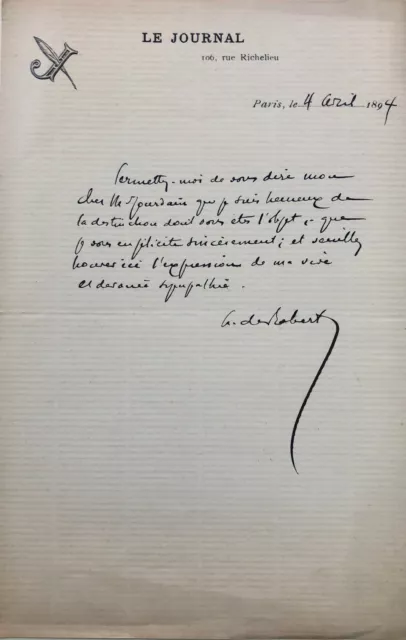 LE JOURNAL
106, rue Richelieu
Paris, le 4 avril 1894
Permettez-moi de vous dire mon
cher M. Jourdain que je suis heureux de
la distinction dont vous êtes l'objet, que
je vous en félicite sincèrement; et veuillez
trouver ici l'expression de ma vive
et dévouée sympathie.
de Robert